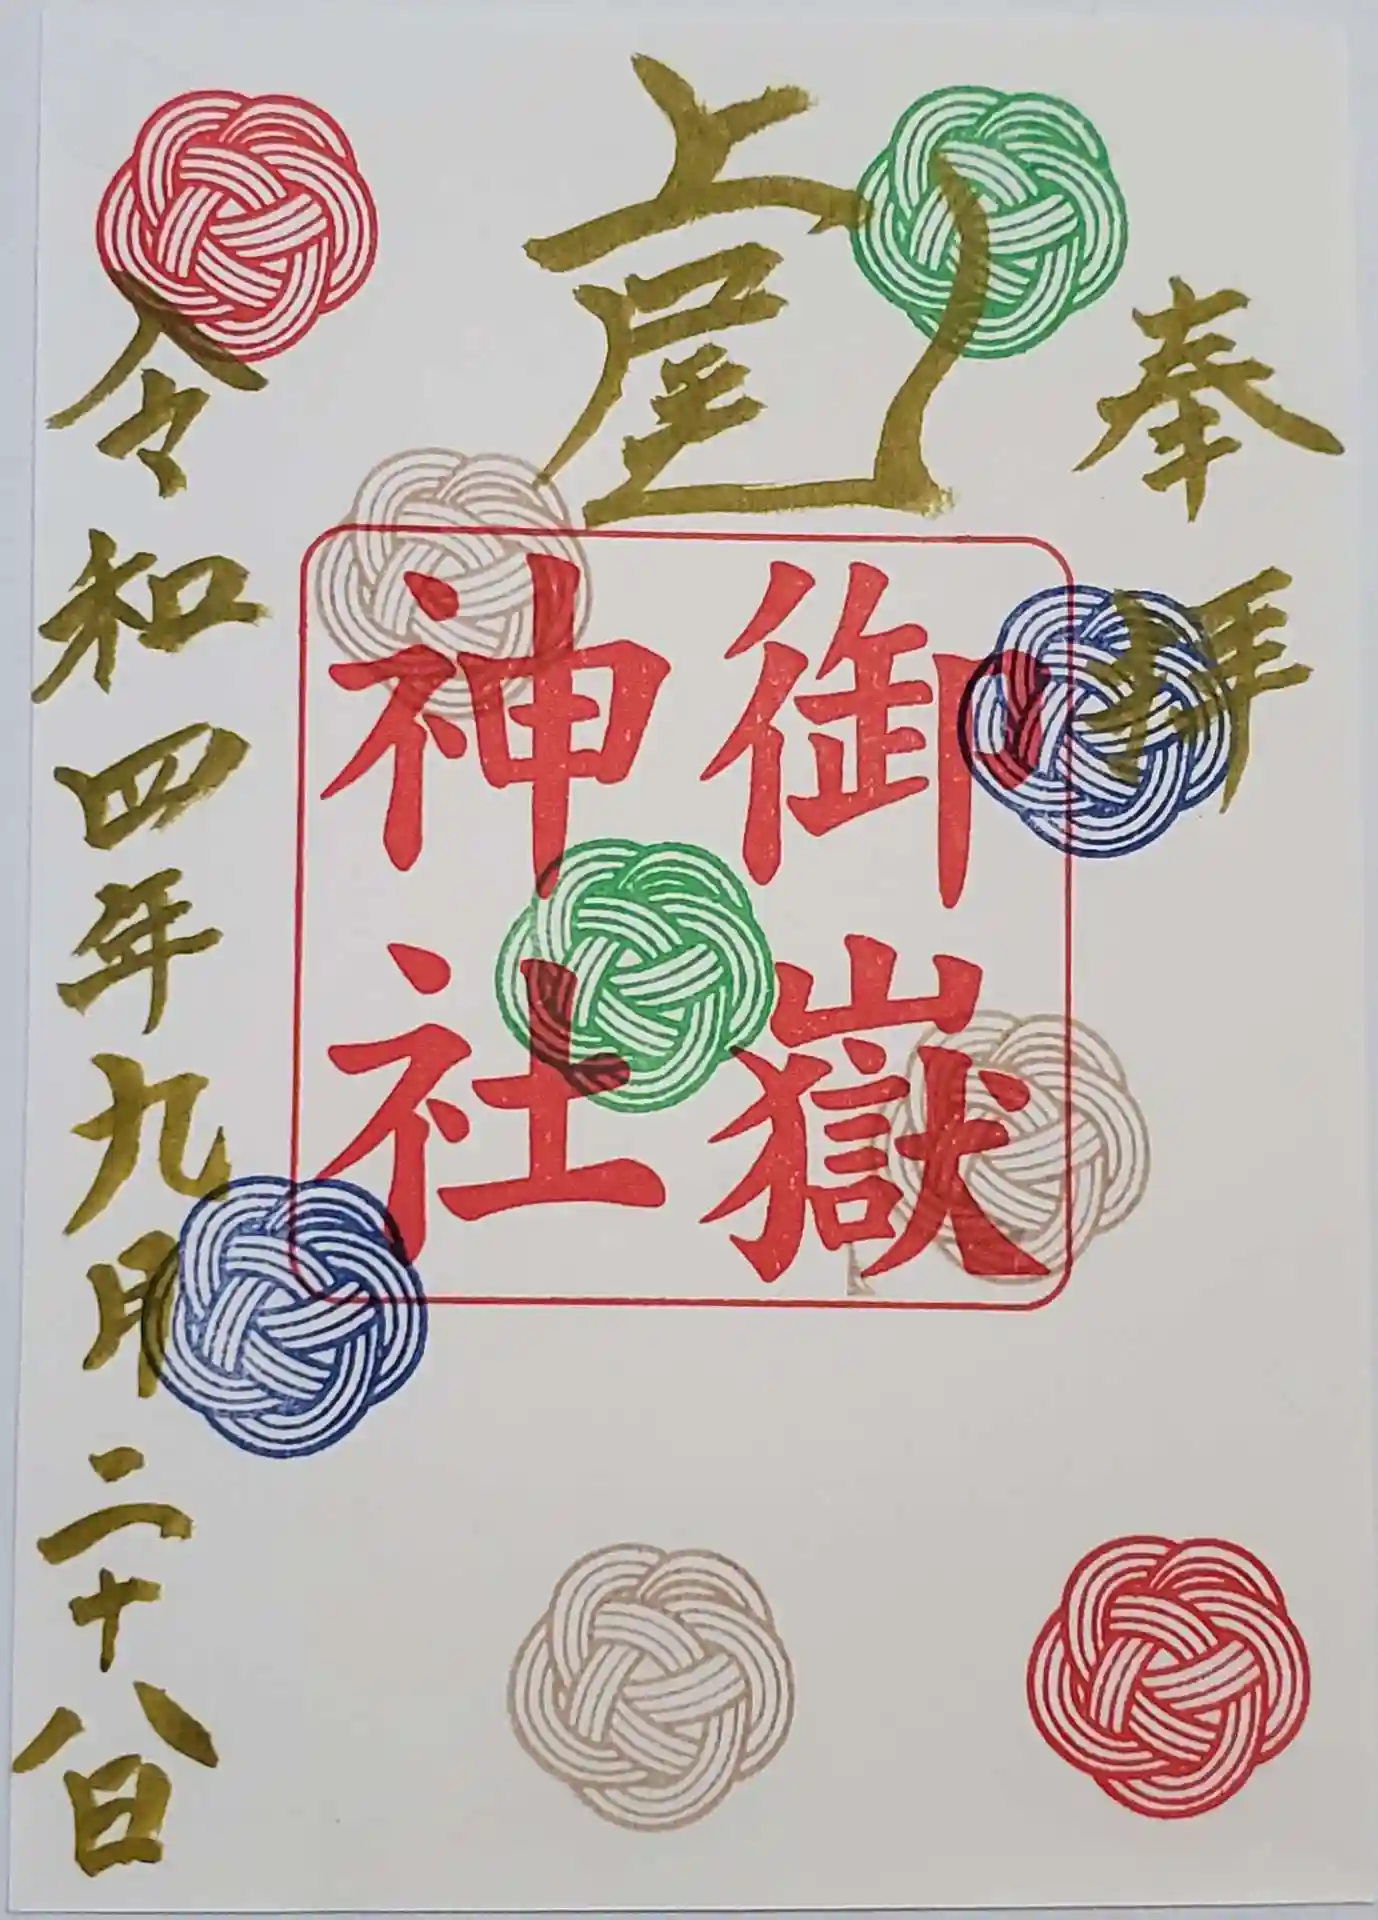 奉拝
上屋
御嶽
神社
令和四年九月二十八日